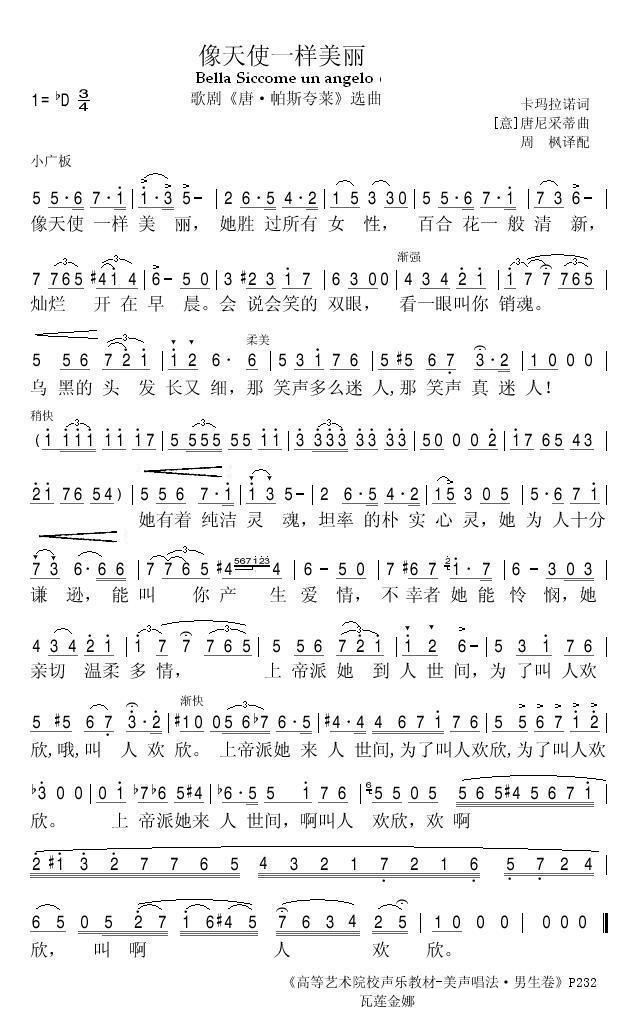 像天使一样美丽
Bella Siccome un angelo
1=♭D 3/4
歌剧《唐·帕斯夸莱》选曲
卡玛拉诺词
[意]唐尼采蒂曲
周 枫译配
小广板
5 5·6 7·1 | 1·3 5- | 2 6·5 4·2 | 1 5 3 3 0 | 5 5·6 7·1 | 7 3 6- |
像天使 一样 美 丽，她胜 过所有 女 性， 百合 花一 般 清 新，
渐强
7 765 #414 | 6- 5 0 | 3 #2 3 1 7 | 6 3 0 0 | 4 3 4 2 1 | 1 7 7 765 |
灿烂 开 在 早 晨。会 说会笑的 双眼， 看一眼叫你 销魂。
柔美
5 5 6 7 2 1 | 1 2 6· 6 | 5 3 1 7 6 | 5 #5 6 7 3·2 | 1 0 0 0 |
乌 黑的 头 发 长又 细，那 笑声多么迷 人,那 笑声 真 迷 人！
稍快
(1 111 11 17 | 5 555 55 11 | 3 333 33 33 | 5 0 0 0 2 | 1 7 6 5 4 3 |
2 1 7 6 5 4) | 5 5 6 7·1 | 1 3 5- | 2 6·5 4·2 | 1 5 3 0 5 | 5·6 7 1 |
她有着 纯洁 灵 魂，坦率 的朴 实 心 灵，她 为 人十分
7 3 6·6 6 | 7 7 6 5 #4 567123 4 | 6- 5 0 | 7 #6 7 2 1·7 | 6- 3 0 3 |
谦 逊，能 叫 你 产 生 爱 情，不 幸者 她 能 怜 悯，她
4 3 4 2 1 | 1 7 7 765 | 5 5 6 7 2 1 | 1 2 6- | 5 3 1 7 6 |
亲切 温柔 多 情， 上 帝派 她 到 人 世 间，为 了叫 人欢
渐快
5 #5 6 7 3·2 | #1 0 0 5 6 ♭7 6·5 | #4·4 4 6 7 1 7 6 | 5 5 6 7 1 2 |
欣,哦,叫 人 欢 欣。 上帝派她 来 人 世间,为了叫人欢欣,为了叫人欢
♭3 0 0 | 0 1 ♭7 ♭6 5 #4 | ♭6·5 5 1 7 6 | 6 5 5 0 5 5 6 5 #4 5 6 7 1 |
欣。 上 帝派她来 人 世间，啊叫人 欢欣，欢 啊
2 #1 3 2 7 7 6 5 4 3 2 1 7 2 1 6 5 7 2 4 |
6 5 0 5 2 7 1 6 #4 5 | 7 6 3 4 2 5 | 1 0 0 0 0 0 ‖
欣， 叫 啊 人 欢 欣。
《高等艺术院校声乐教材-美声唱法·男生卷》P232
瓦莲金娜